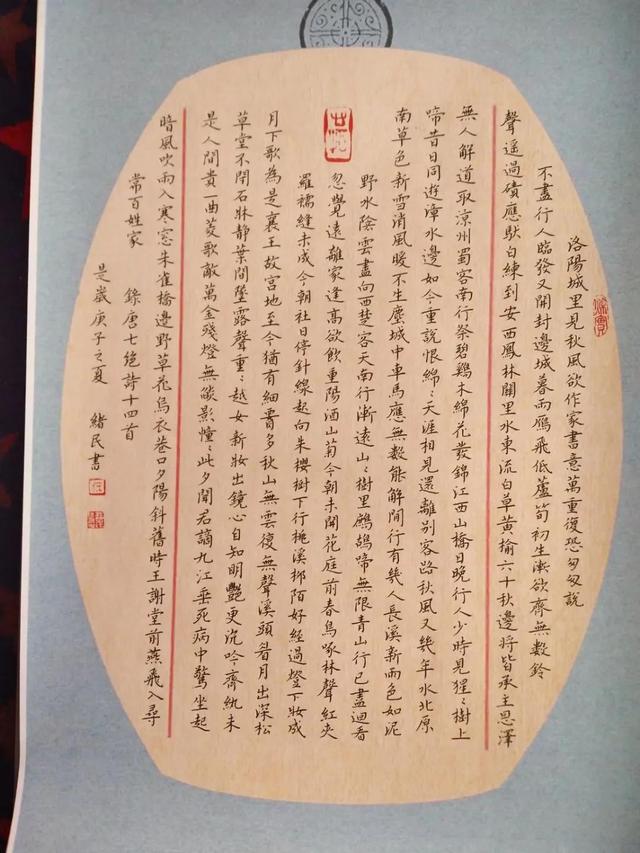 洛陽城里見秋風欲作家書意萬重復恐匆匆說
不盡行人臨發又開封邊城暮雨雁飛低蘆筍初生漸欲齊無數鈴
聲遙過磧應馱白練到安西鳳林關里水東流白草黃榆六十秋邊將皆承主恩澤
無人解道取涼州蜀客南行祭碧鷄木綿花發錦江西山橋日晚行人少時見猩〻樹上
啼昔日同遊漳水邊如今重說恨綿〻天涯相見還離別客路秋風又幾年水北原
南草色新雪消風暖不生塵城中車馬應無數能解閒行有幾人長溪新雨色如泥
野水陰雲盡向西楚客天南行漸遠山〻樹里鷓鴣啼無限青山行已盡迴看
忽覺遠離家逢高欲飲重陽酒山菊今朝未開花庭前春鳥啄林聲紅夾
羅襦縫未成今朝社日停針線起向朱櫻樹下行桃溪柳陌好經過燈下妝成
月下歌為是襄王故宮地至今猶有細眉多秋山無雲復無聲溪頭看月出深松
草堂不閉石牀靜葉間墜露聲重〻越女新妝出鏡心自知明艷更沉吟齊紈未
是人間貴一曲菱歌敵萬金殘燈無燄影幢〻此夕聞君謫九江垂死病中驚坐起
暗風吹雨入寒窓朱雀橋邊野草花烏衣巷口夕陽斜舊時王謝堂前燕飛入尋
常百姓家 錄唐七絕詩十四首
是歲庚子之夏 緒民書